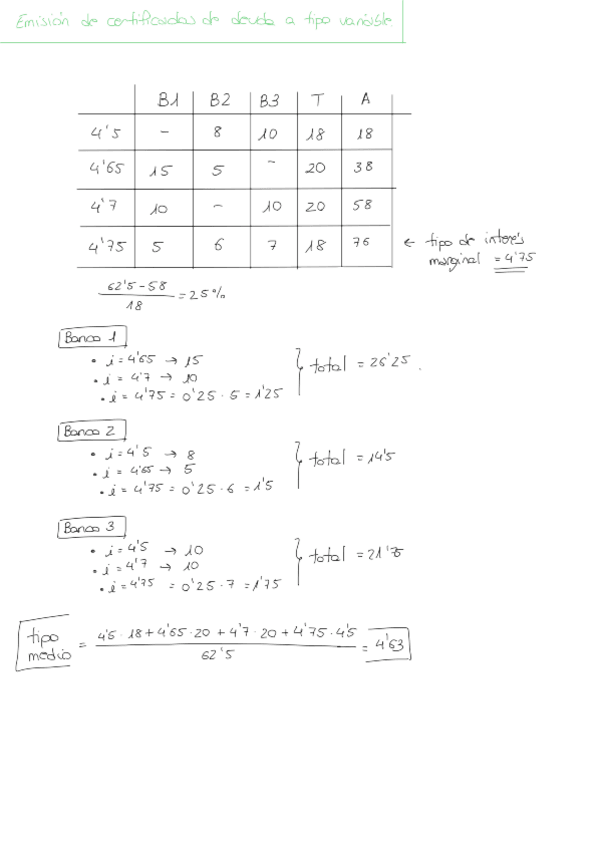 Emisión de certificados de deuda a tipo variable
B1 B2 B3 T A
4'5 - 8 10 18 18
4'65 15 5 - 20 38
4'7 10 - 10 20 58
4'75 5 6 7 18 76 ← tipo de interés
marginal = 4'75
62'5-58 / 18 = 25%
Banco 1
• i = 4'65 → 15
• i = 4'7 → 10
• i = 4'75 = 0'25 · 5 = 1'25
total = 26'25.
Banco 2
• i = 4'5 → 8
• i = 4'65 → 5
• i = 4'75 = 0'25 · 6 = 1'5
total = 14'5
Banco 3
• i = 4'5 → 10
• i = 4'7 → 10
• i = 4'75 = 0'25 · 7 = 1'75
total = 21'75
tipo medio = 4'5 · 18 + 4'65 · 20 + 4'7 · 20 + 4'75 · 4'5 / 62'5 = 4'63